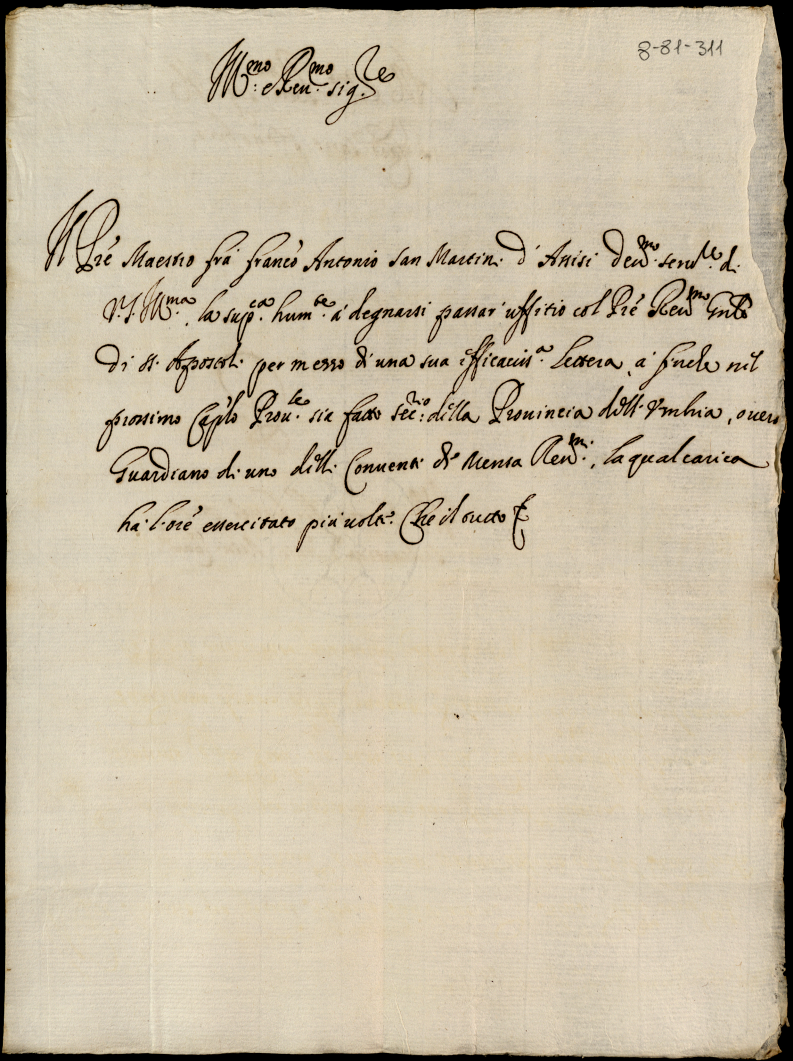 8-81-311
Ill.mo e Reu.mo Sig.re
Il Pre Maestro fra Franco Antonio San Martini d'Assisi deu.mo seru.re di
V.S. Ill.ma, la sup.ca hum.te á degnarsi passar uffitio col Pre Reu.mo Gnle
di SS. Apostoli per mezzo d'una sua efficaciss.a lettera, á finche nel
prossimo Caplo Prou.le sia fatto Sec.rio della Prouincia dell'Vmbria, ouero
Guardiano di uno delli Conuenti di Mensa Reu.mi, la qual carica
ha l'ore essercitato più volte. Che il tutto &